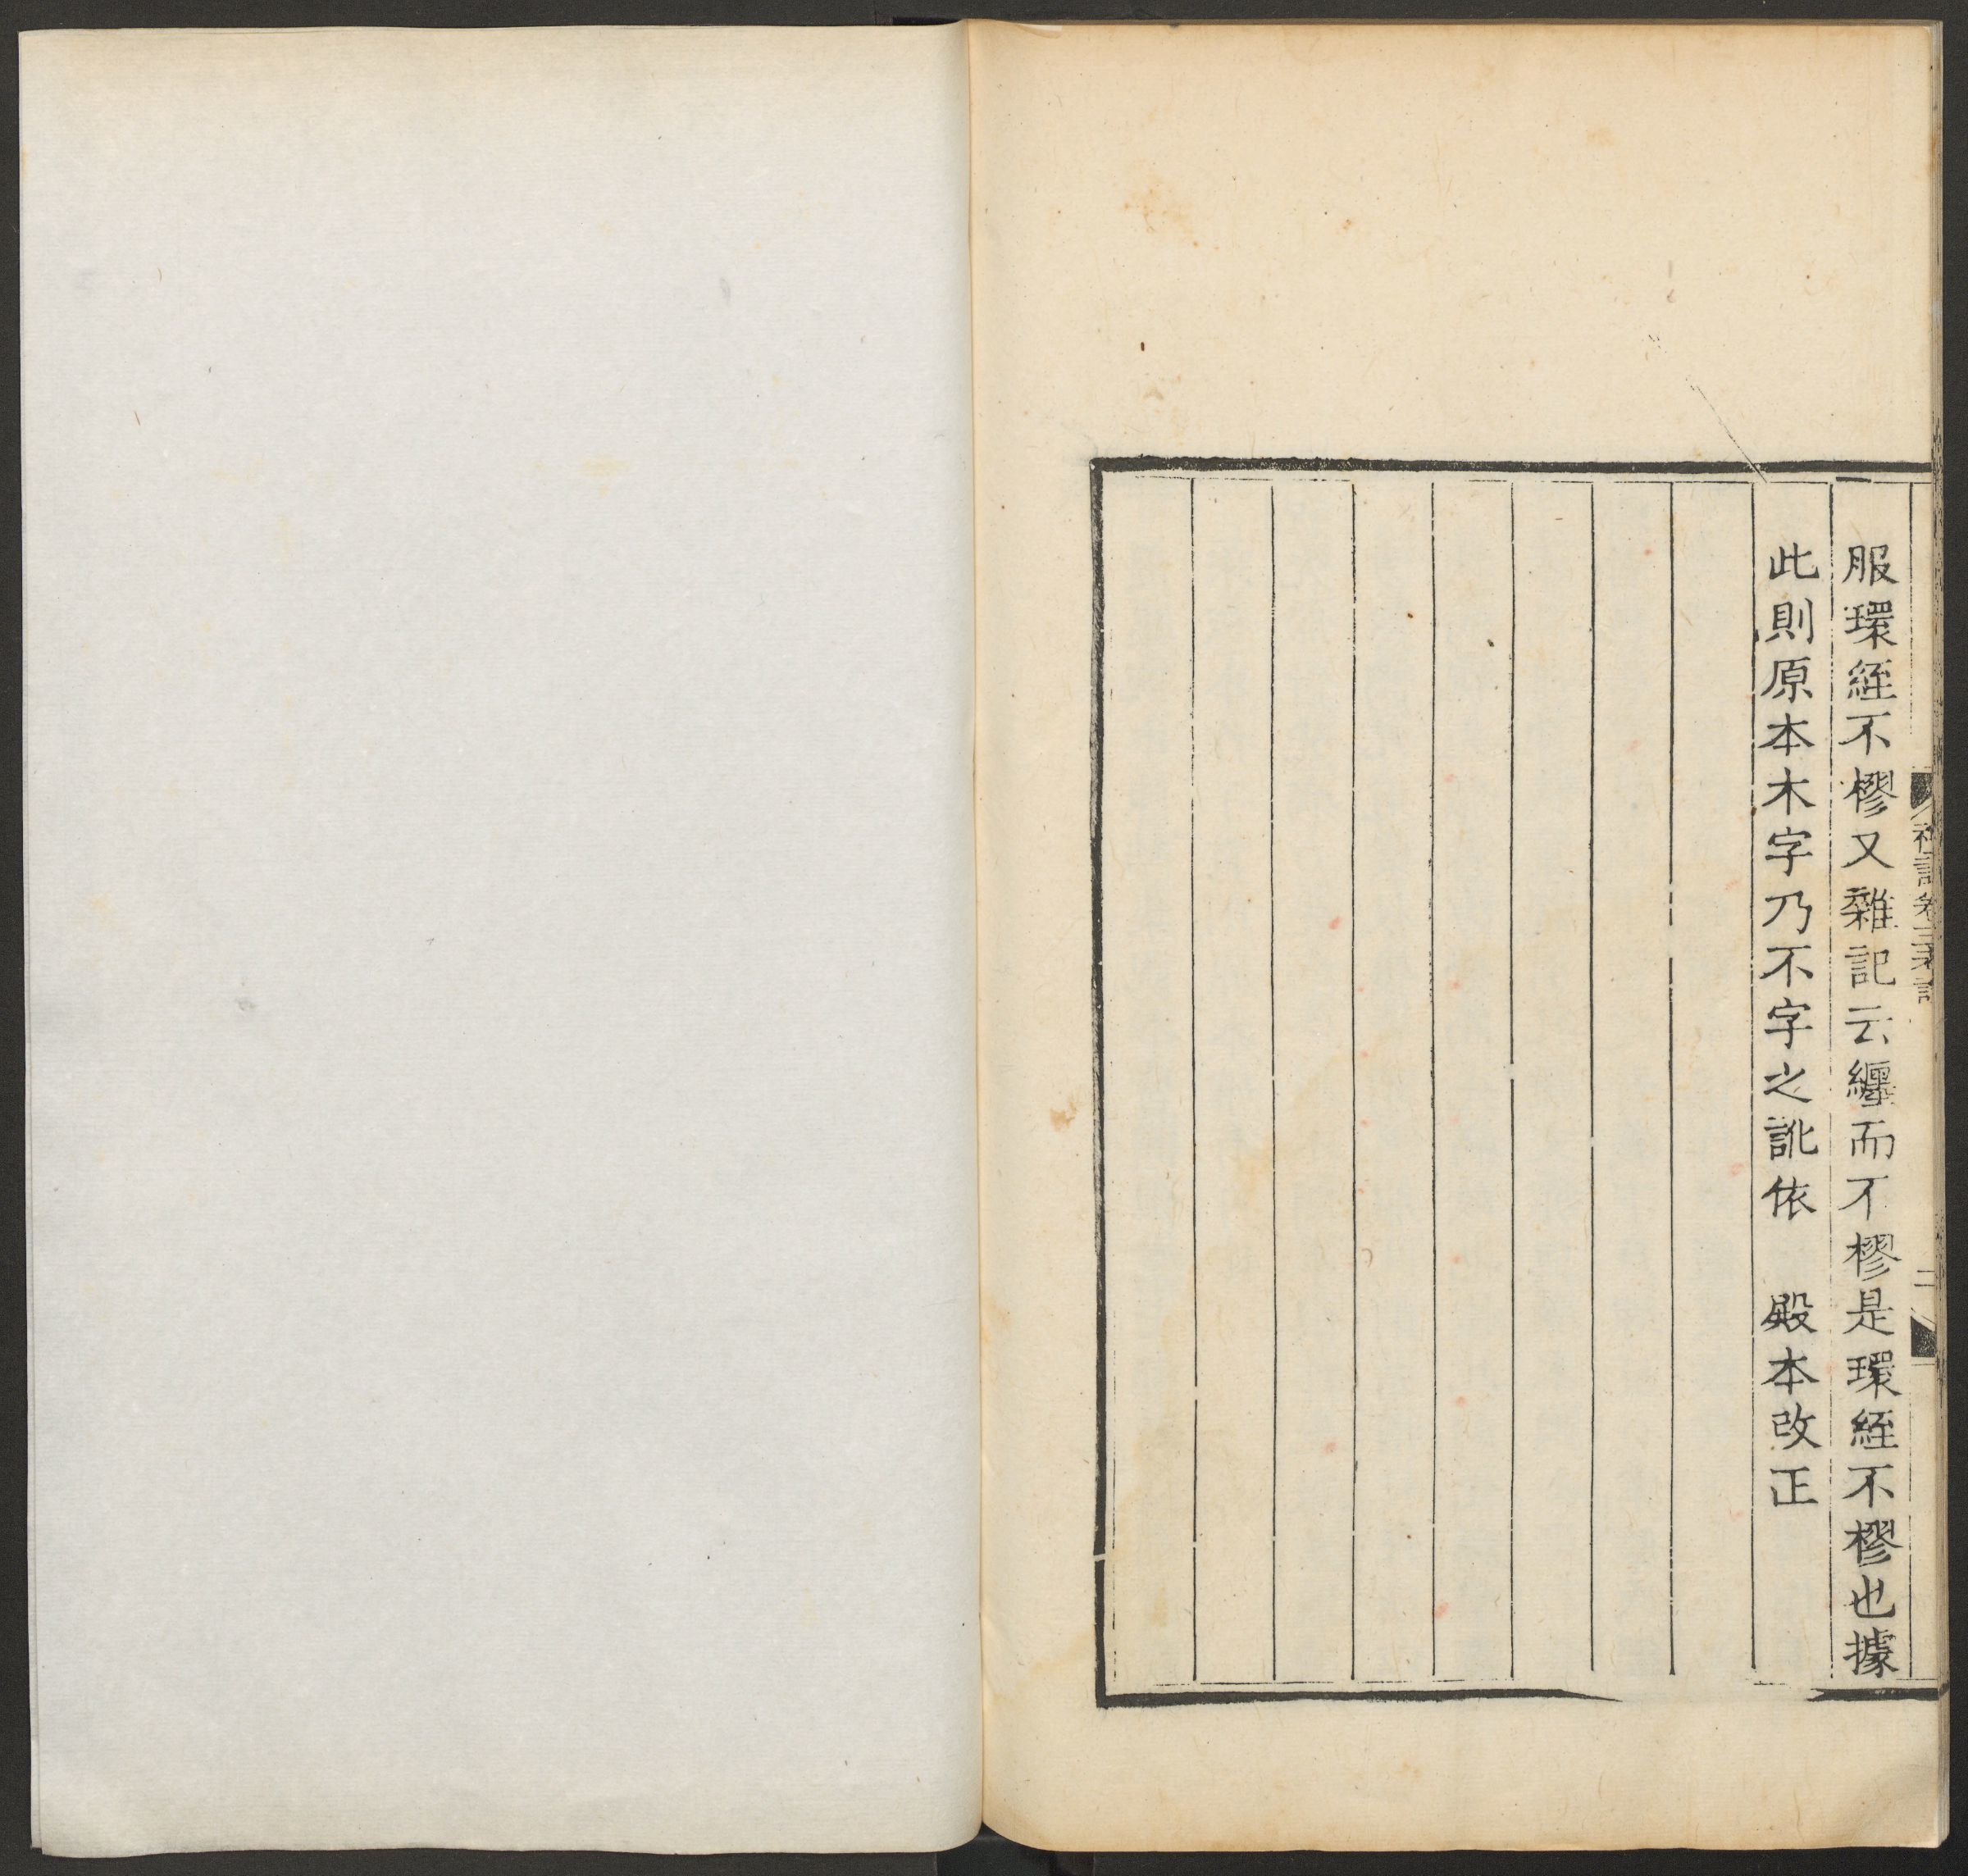 服環絰不樛又雜記云纏而不樛是環絰不樛也據
此則原本木字乃不字之訛依　殿本改正